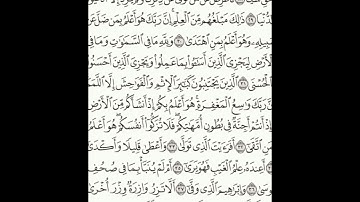 لدُّنْيَا ٢٩ ذَٰلِكَ مَبْلَغُهُم مِّنَ ٱلْعِلْمِ إِنَّ رَبَّكَ هُوَ أَعْلَمُ بِمَن ضَلَّ عَن
سَبِيلِهِۦ وَهُوَ أَعْلَمُ بِمَنِ ٱهْتَدَىٰ ٣٠ وَلِلَّهِ مَا فِي ٱلسَّمَٰوَٰتِ وَمَا فِي
ٱلْأَرْضِ لِيَجْزِيَ ٱلَّذِينَ أَسَٰٓـُٔوا۟ بِمَا عَمِلُوا۟ وَيَجْزِيَ ٱلَّذِينَ أَحْسَنُوا۟
بِٱلْحُسْنَى ٣١ ٱلَّذِينَ يَجْتَنِبُونَ كَبَٰٓئِرَ ٱلْإِثْمِ وَٱلْفَوَٰحِشَ إِلَّا ٱللَّمَمَ
إِنَّ رَبَّكَ وَٰسِعُ ٱلْمَغْفِرَةِ هُوَ أَعْلَمُ بِكُمْ إِذْ أَنشَأَكُم مِّنَ ٱلْأَرْضِ
وَإِذْ أَنتُمْ أَجِنَّةٌ فِي بُطُونِ أُمَّهَٰتِكُمْ فَلَا تُزَكُّوٓا۟ أَنفُسَكُمْ هُوَ أَعْلَمُ
بِمَنِ ٱتَّقَىٰٓ ٣٢ أَفَرَءَيْتَ ٱلَّذِي تَوَلَّىٰ ٣٣ وَأَعْطَىٰ قَلِيلًا وَأَكْدَىٰٓ
٣٤ أَعِندَهُۥ عِلْمُ ٱلْغَيْبِ فَهُوَ يَرَىٰٓ ٣٥ أَمْ لَمْ يُنَبَّأْ بِمَا فِي صُحُفِ
مُوسَىٰ ٣٦ وَإِبْرَٰهِيمَ ٱلَّذِي وَفَّىٰٓ ٣٧ أَلَّا تَزِرُ وَازِرَةٌ وِزْرَ أُخْرَىٰ